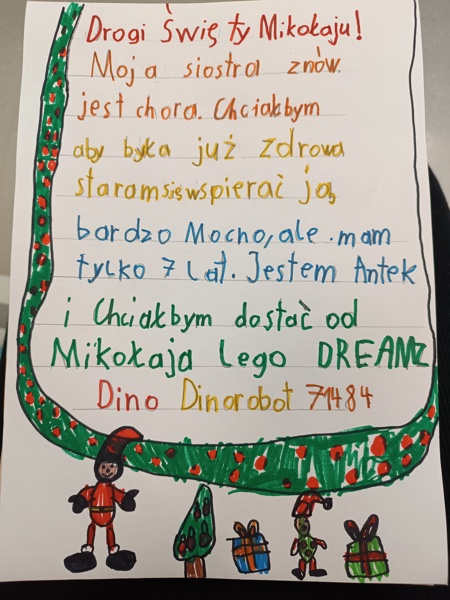 Drogi Święty Mikołaju!
Moja siostra znów.
jest chora. Chciałbym
aby była już zdrowa
staram się wspierać ją,
bardzo Mocno, ale .mam
tylko 7 lat. Jestem Antek
i Chciałbym dostać od
Mikołaja Lego DREAMZ
Dino Dinorobot 71484